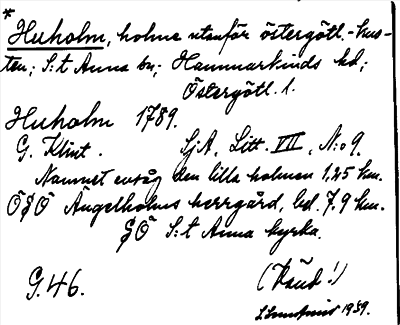 *
Huholm, holme utanför östergötl.-kus-
ten; S:t Anna sn; Hammarkinds hd;
Östergötl. l.
Huholm 1789.
G. Klint. SjA, Litt. VII, N:o 9.
Namnet avsåg den lilla holmen 1,25 km.
ÖSÖ Ängelholms herrgård, bel. 7.9 km.
SÖ S:t Anna kyrka.
G. 46. (Känd!)
1939.